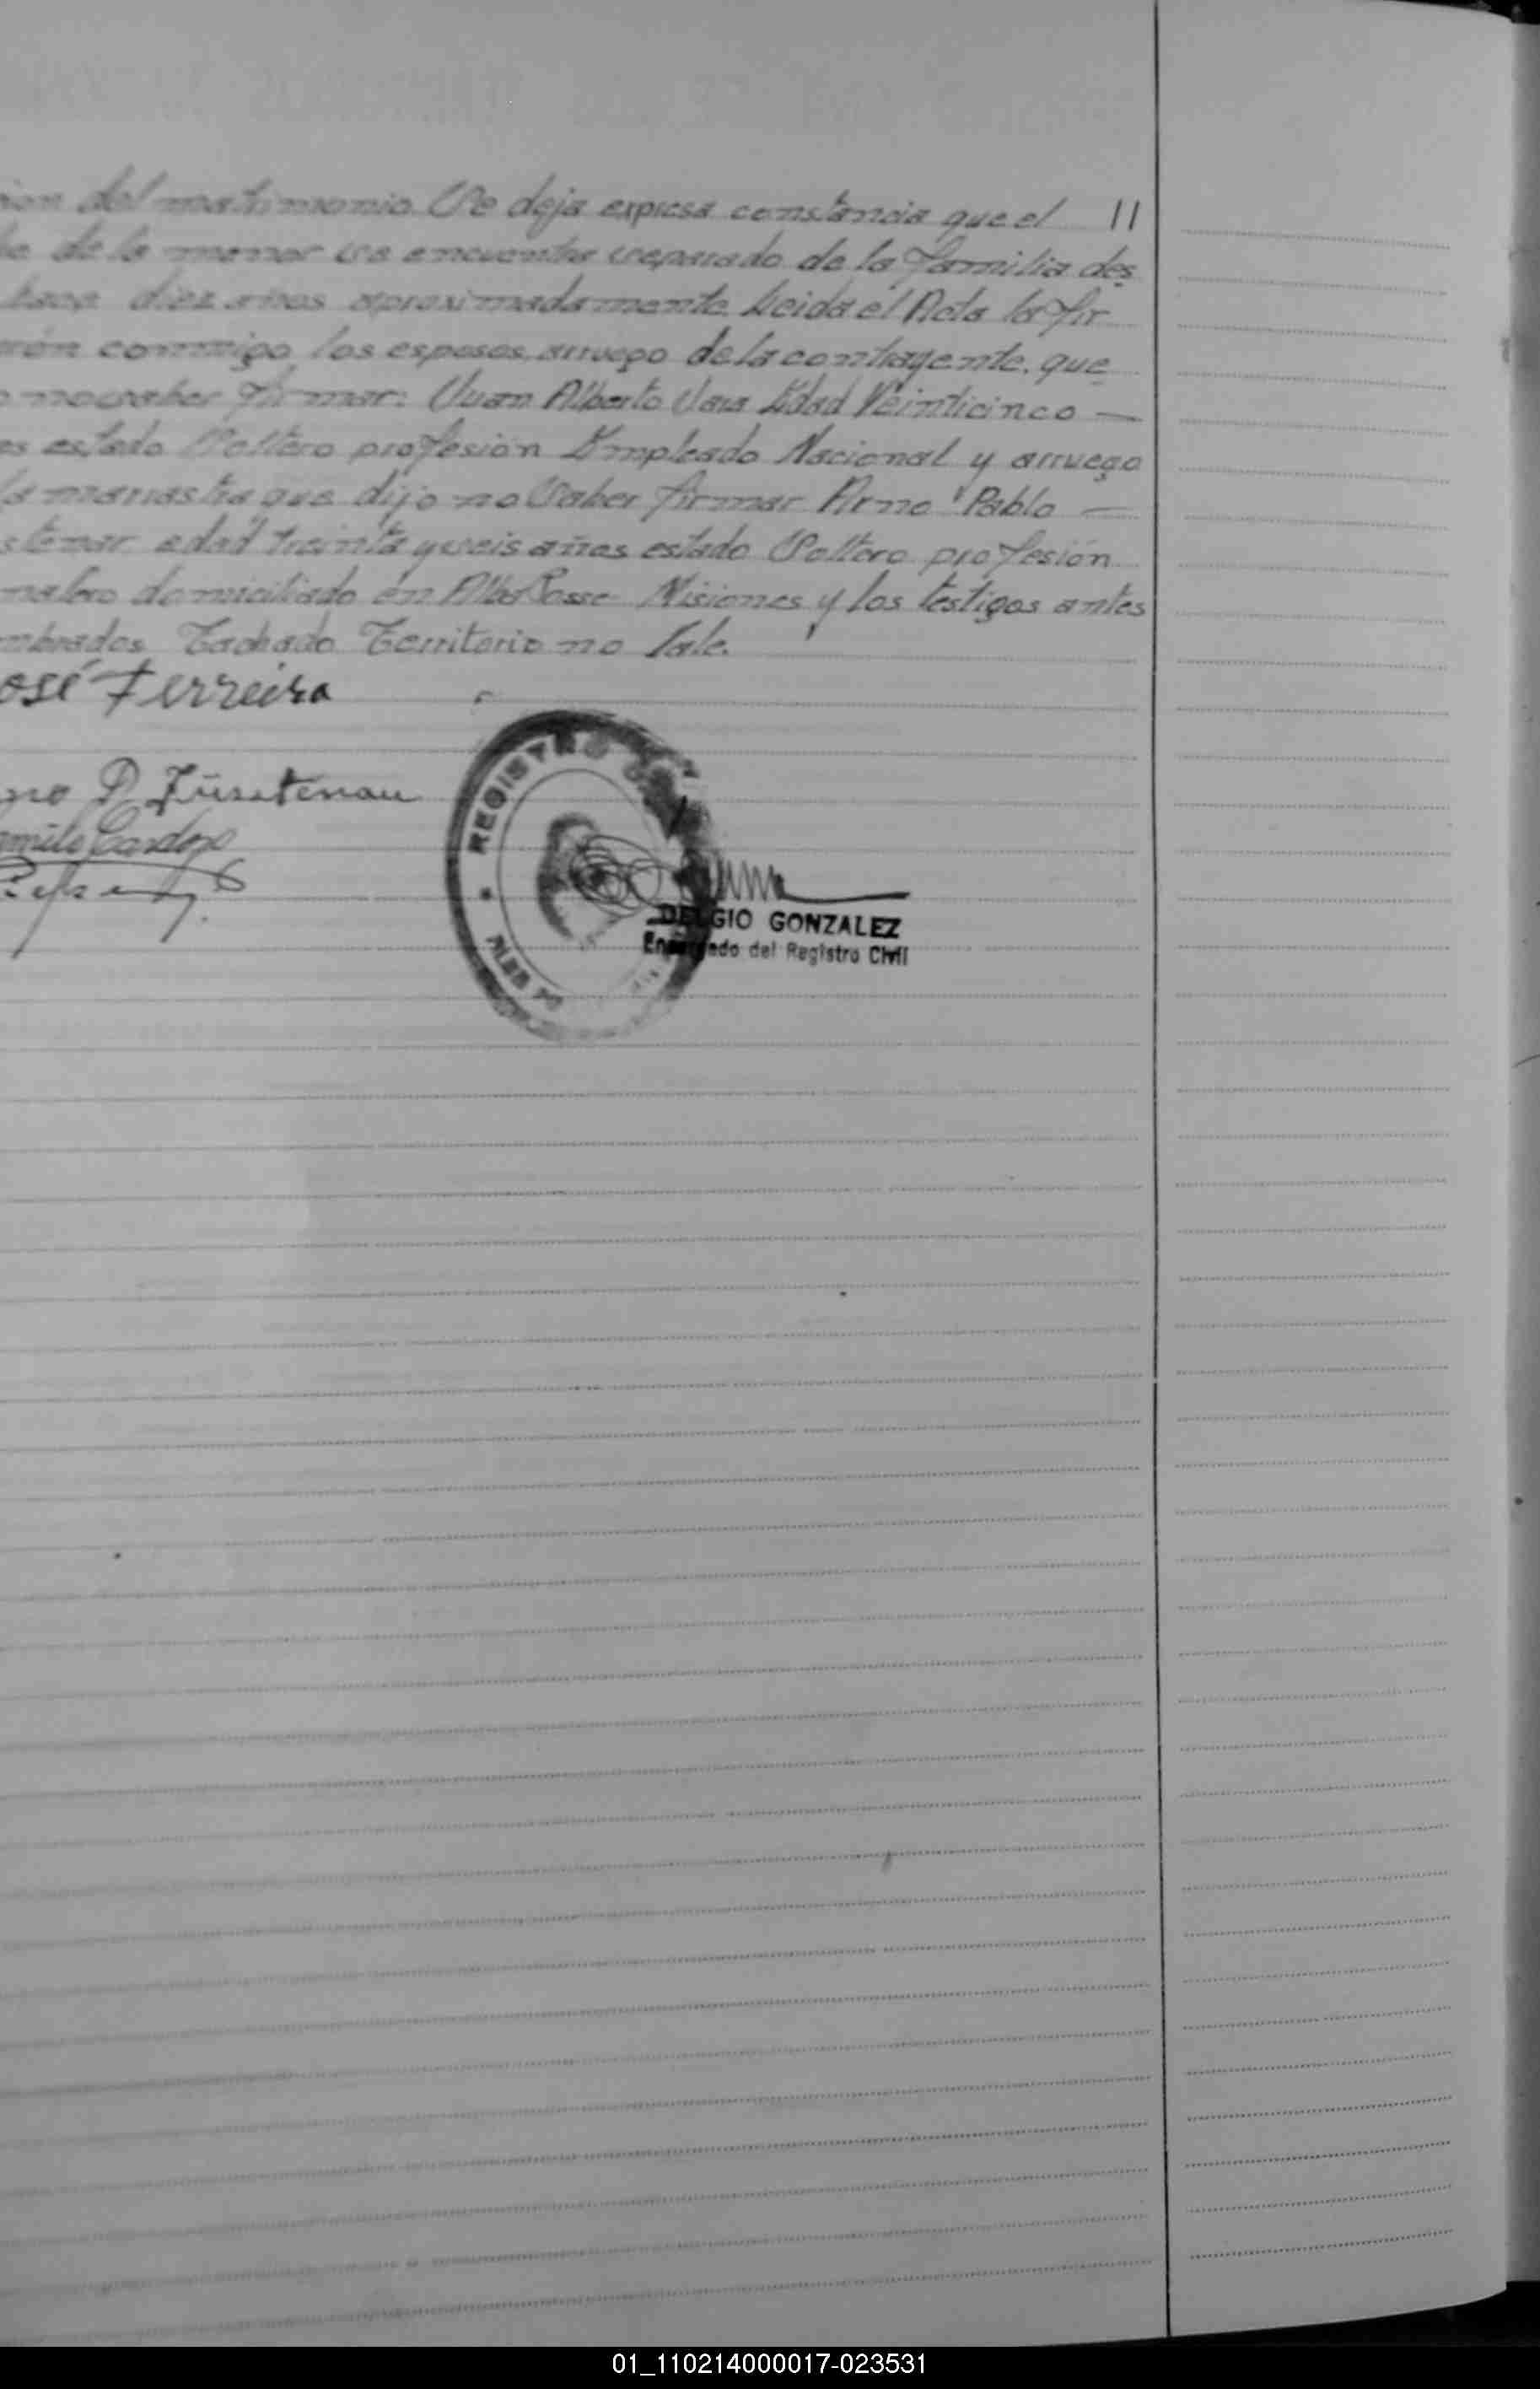 ion del matrimonio Se deja expresa constancia que el 11
de la menor se encuentra separado de la familia des
hace diez años aproximadamente Leida el Acta la fir
ron conmigo los esposos, arruego de la contrayente, que
no saber firmar: Juan Alberto Edad Veinticinco —
os estado Soltero profesión Empleado Nacional y arruego
la que dijo no Saber firmar Arno Pablo —
stenar edad treinta y seis años estado Soltero profesión
nalero domiciliado en Alba Posse Misiones y los testigos antes
mbrados Tachado Territorio no Vale.
osé Ferreira
no P. Fürstenau
amilo Cardozo
REGISTRO
DELGIO GONZALEZ
Encargado del Registro Civil
01_110214000017-023531